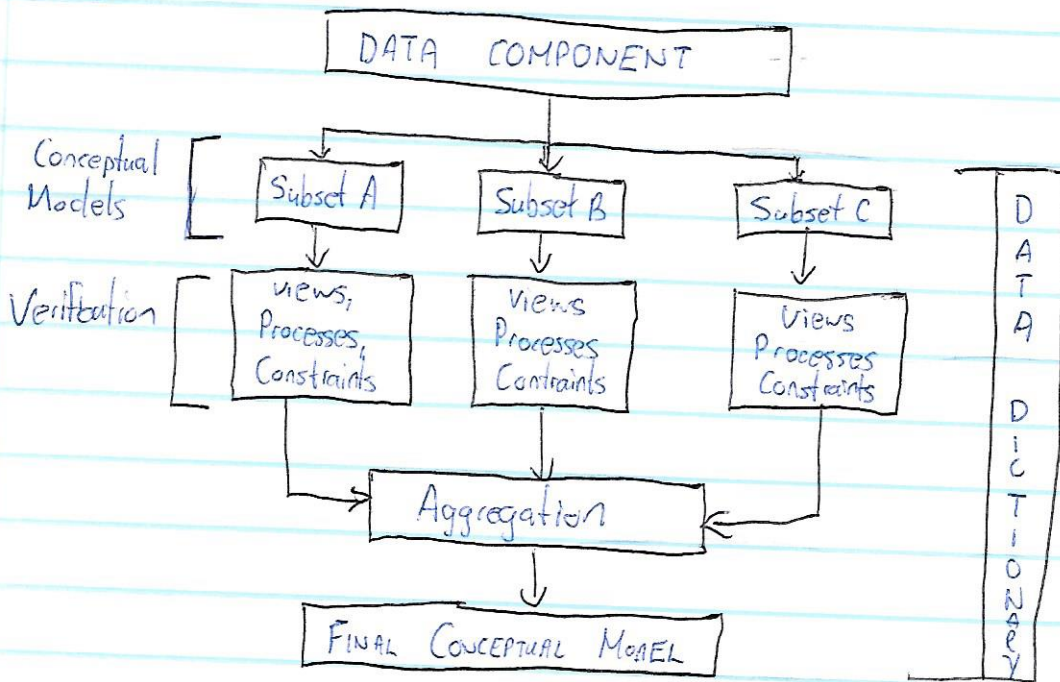 DATA COMPONENT
Conceptual
Models
Subset A
Subset B
Subset C
Verification
views,
Processes,
Constraints
Views
Processes
Contraints
Views
Processes
Constraints
Aggregation
FINAL CONCEPTUAL MODEL
DATA DICTIONARY